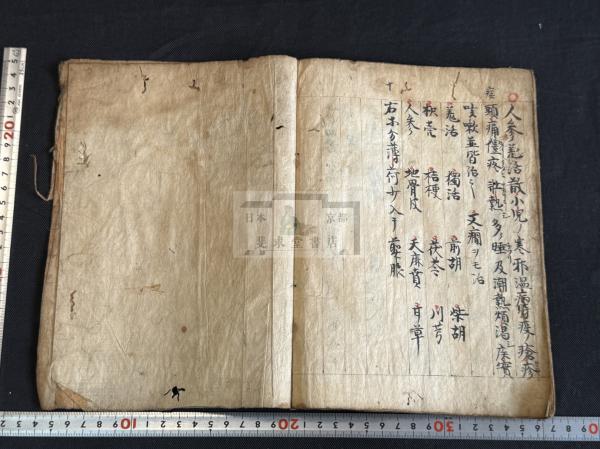 人参羌活散小児ノ寒邪温病時疫ノ瘡疹
頭痛 壮熱多ク睡及潮熱煩渇痰實
咳嗽並皆治之 又癇ヲモ治
羌活 獨活 前胡 柴胡
枳壳 桔梗 茯苓 川芎
人参 地骨皮 天麻 甘草
右 薄荷少入 煎服
日本 京都
斐求堂書店